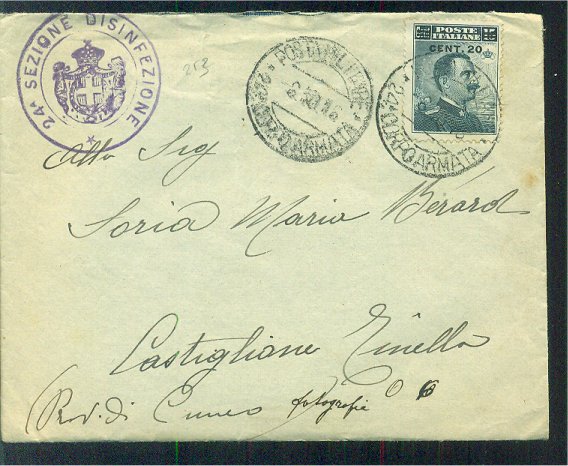 24ª SEZIONE DISINFEZIONE
253
POSTA MILITARE
6.10.16
22º CORPO ARMATA
POSTE
ITALIANE
CENT. 20
22º CORPO ARMATA
Alla Sig
Soria Maria Berard
Castiglione Tinella
(Prv. di Cuneo fotografie